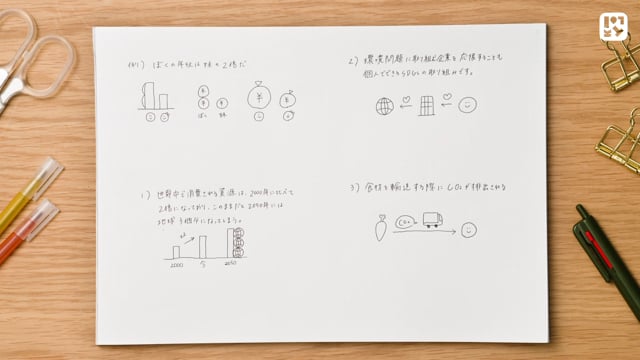 例) ぼくの年収は妹の2倍だ
¥
¥
¥
ぼく
妹
¥
¥
1) 世界中で消費される資源は、2000年に比べて
2倍になっており、このままだと2050年には
地球3個分になってしまう。
x2
2000
今
2050
2) 環境問題に取り組む企業を応援することも
個人でできるSDGsの取り組みです。
3) 食材を輸送する際にCO2が排出される
CO2